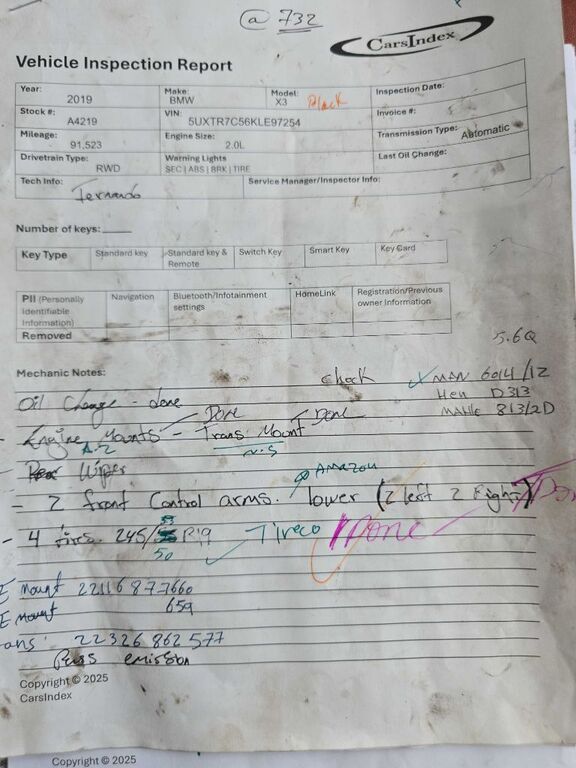 @ 732
CarsIndex
Vehicle Inspection Report
Year: 2019 Make: BMW Model: X3 Black Inspection Date:
Stock #: A4219 VIN: 5UXTR7C56KLE97254 Invoice #:
Mileage: 91,523 Engine Size: 2.0L Transmission Type: Automatic
Drivetrain Type: RWD Warning Lights SEC | ABS | BRK | TIRE Last Oil Change:
Tech Info: Fernando Service Manager/Inspector Info:
Number of keys:
Key Type Standard key Standard key & Remote Switch Key Smart Key Key Card
PII (Personally Identifiable Information) Removed Navigation Bluetooth/Infotainment settings HomeLink Registration/Previous owner Information
5.6Q
Mechanic Notes:
check MAN 6014/1Z
Oil Change - done Hen D313
MAHLE 813/2D
Done Done
- Engine Mounts - Trans Mount
A.Z N.S
Wiper
Amazon
- 2 front Control arms. lower (2 left 2 Right)
- 4 tires. 245/ R19 Tireco Done
50
E mount 22116877660
E mount 659
ans: 22326862577
Pass emission
Copyright © 2025
CarsIndex
Copyright © 2025